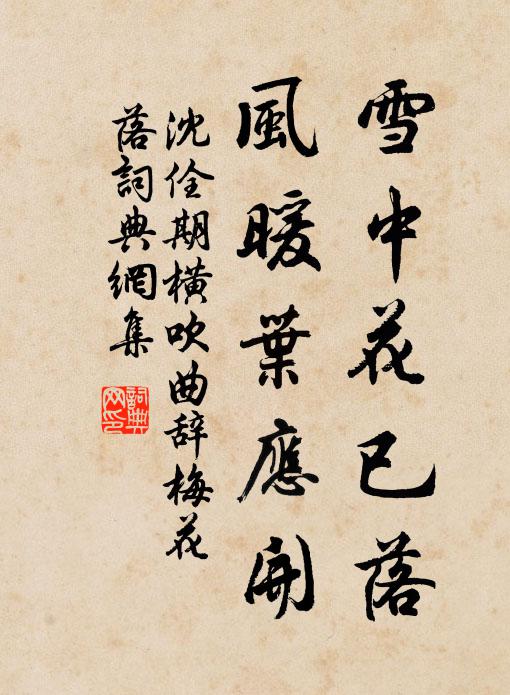 雪中花已落
風暖葉應開
沈佺期橫吹曲辞梅花
落詞典網集
詞典
网印